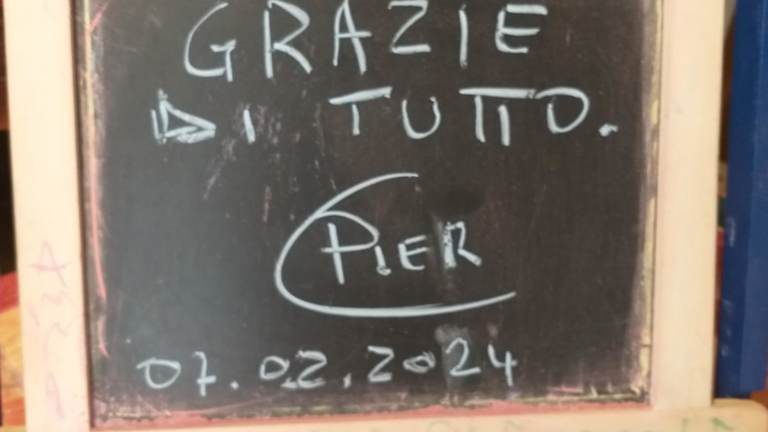 GRAZIE
DI TUTTO.
PIER
07.02.2024